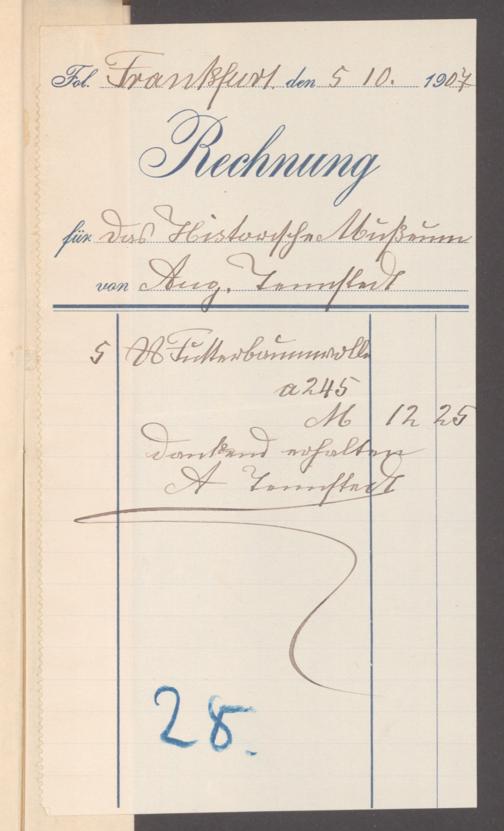 Fol. Frankfurt. den 5 10. 1907
Rechnung
für das Historische Mußeum
von Aug. Tennstedt
5 ℔ Futterbaumwolle
a 245
M 12 25
dankend erhalten
A Tennstedt
28.